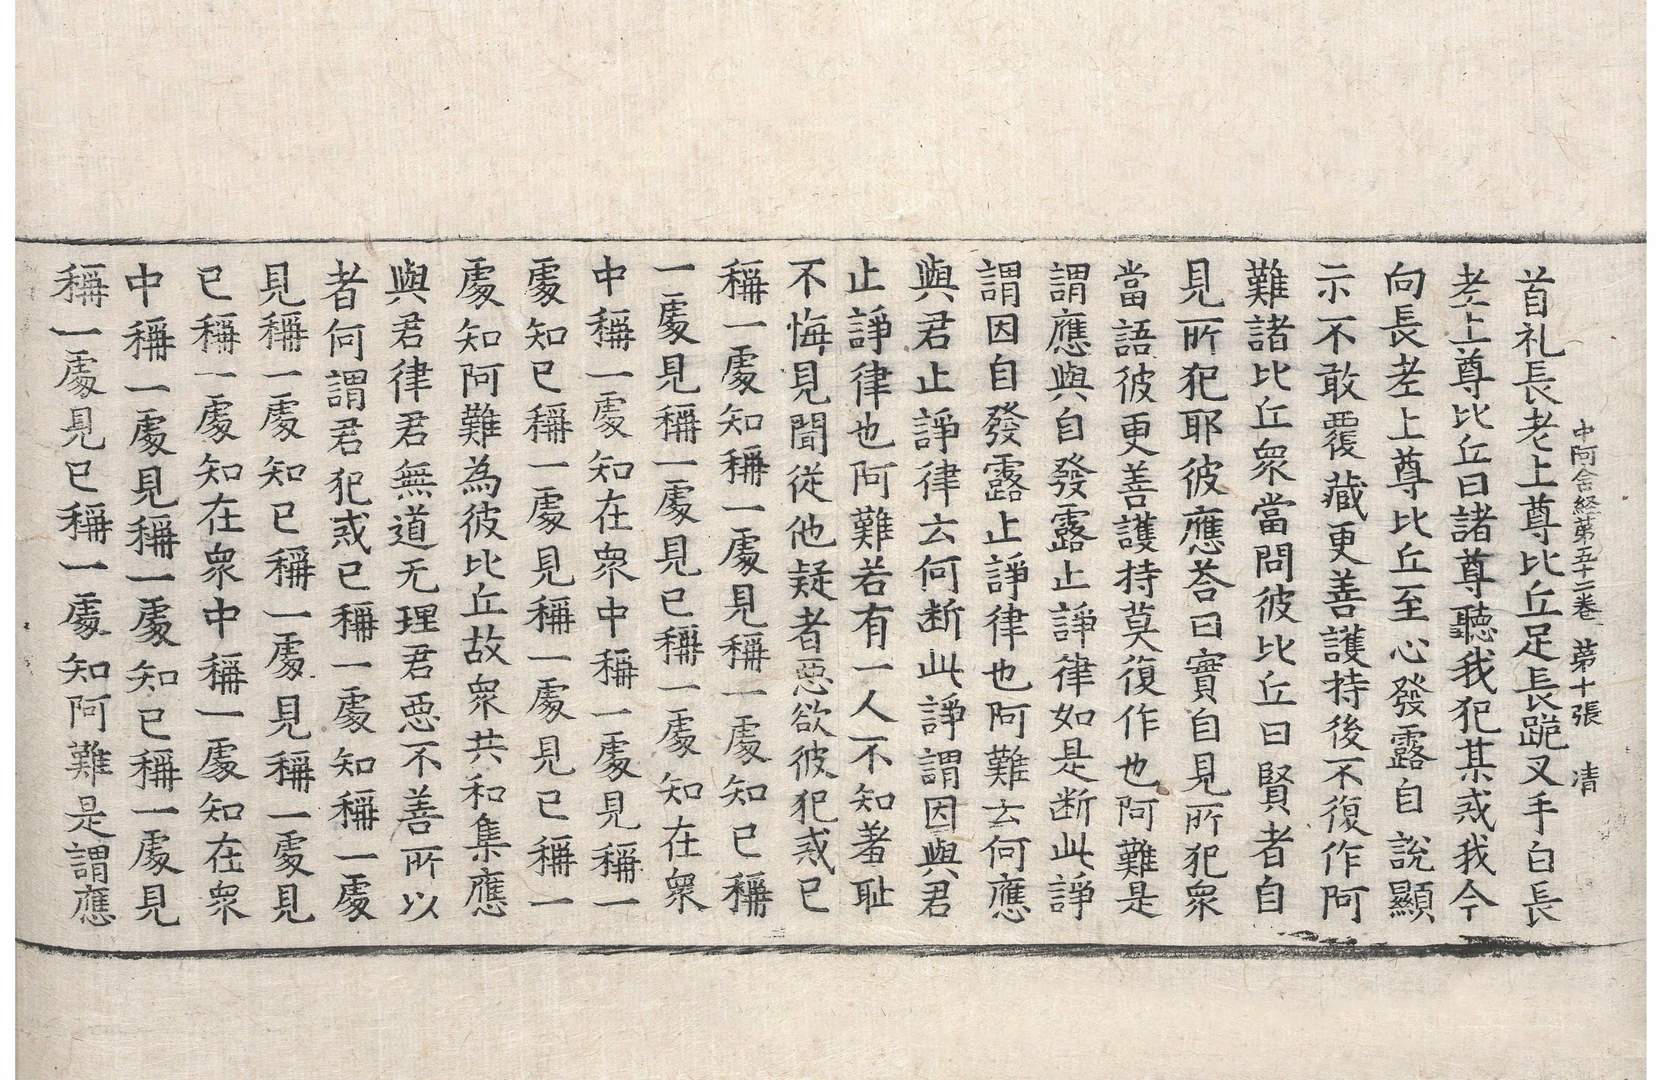 中阿含経第五十二卷　第十張　清
首礼長老上尊比丘足長跪叉手白長
老上尊比丘曰諸尊聽我犯某戒我今
向長老上尊比丘至心發露自說顯
示不敢覆藏更善護持後不復作阿
難諸比丘衆當問彼比丘曰賢者自
見所犯耶彼應荅曰實自見所犯衆
當語彼更善護持莫復作也阿難是
謂應與自發露止諍律如是断此諍
謂因自發露止諍律也阿難云何應
與君止諍律云何断此諍謂因與君
止諍律也阿難若有一人不知羞耻
不悔見聞從他疑者悪欲彼犯戒已
稱一處知稱一處見稱一處知已稱
一處見稱一處見已稱一處知在衆
中稱一處知在衆中稱一處見稱一
處知已稱一處見稱一處見已稱一
處知阿難為彼比丘故衆共和集應
與君律君無道无理君悪不善所以
者何謂君犯戒已稱一處知稱一處
見稱一處知已稱一處見稱一處見
已稱一處知在衆中稱一處知在衆
中稱一處見稱一處知已稱一處見
稱一處見已稱一處知阿難是謂應